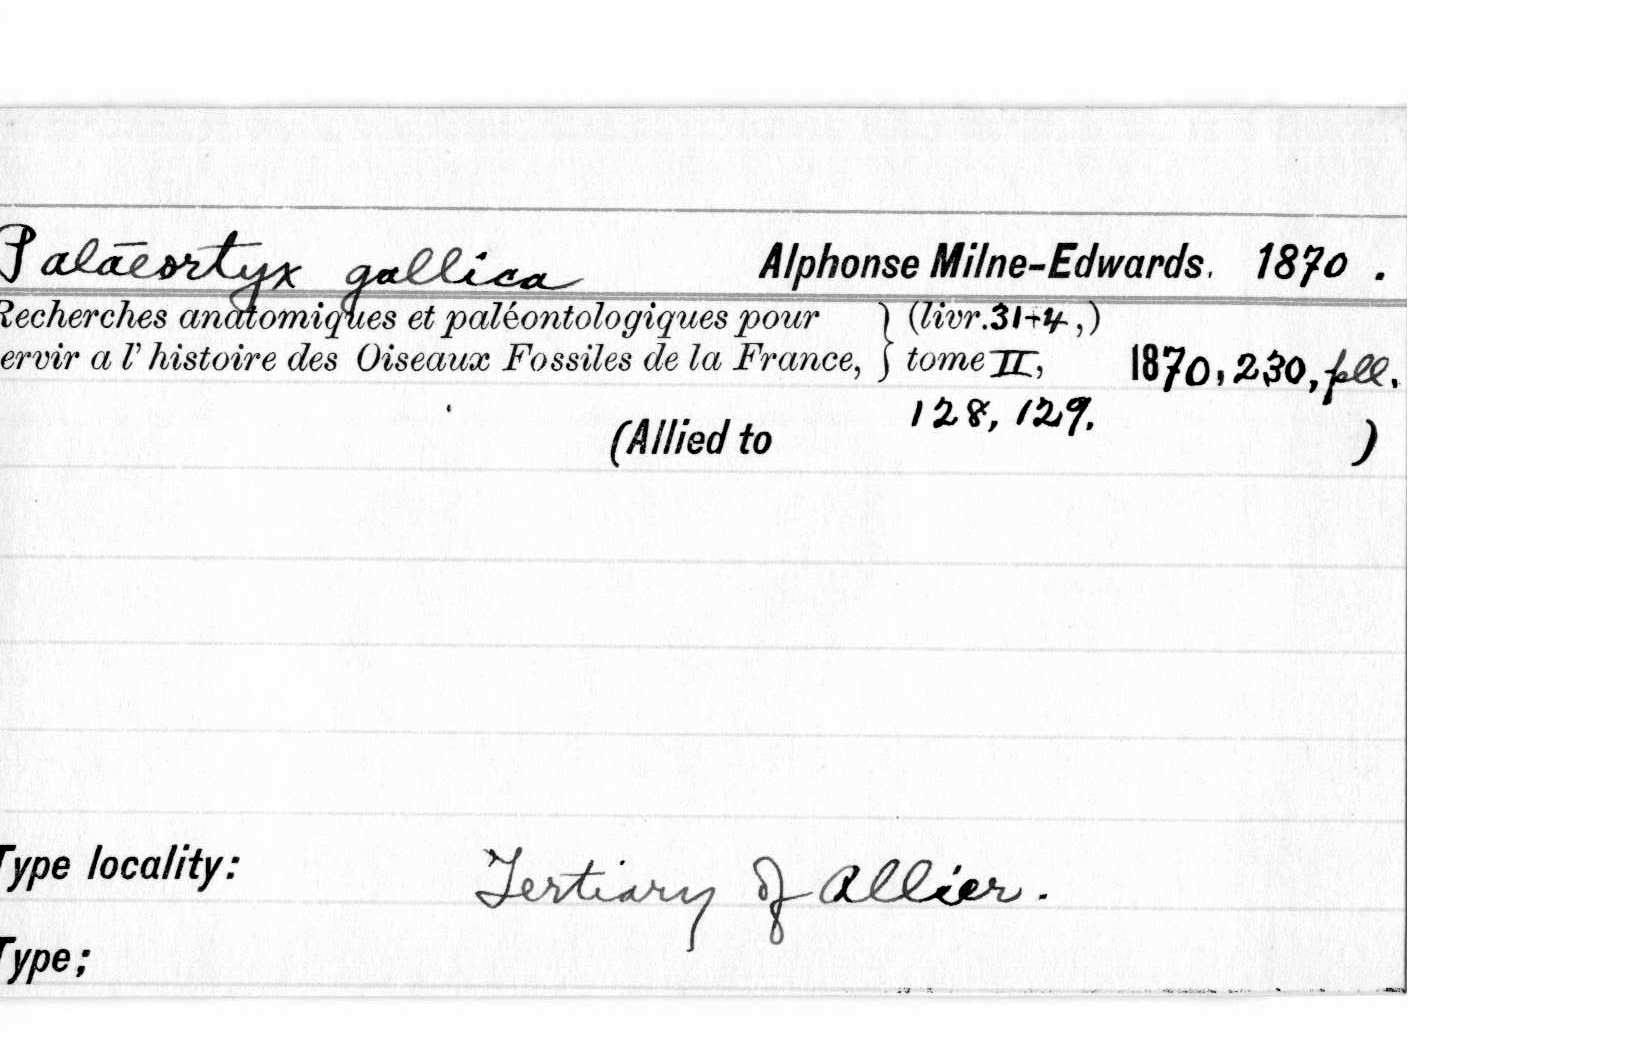 Palaeortyx gallica Alphonse Milne-Edwards. 1870.
Recherches anatomiques et paléontologiques pour (livr.31+4,)
ervir a l' histoire des Oiseaux Fossiles de la France, tome II, 1870, 230, pll.
128, 129.
(Allied to )
Type locality: Tertiary of Allier.
Type;